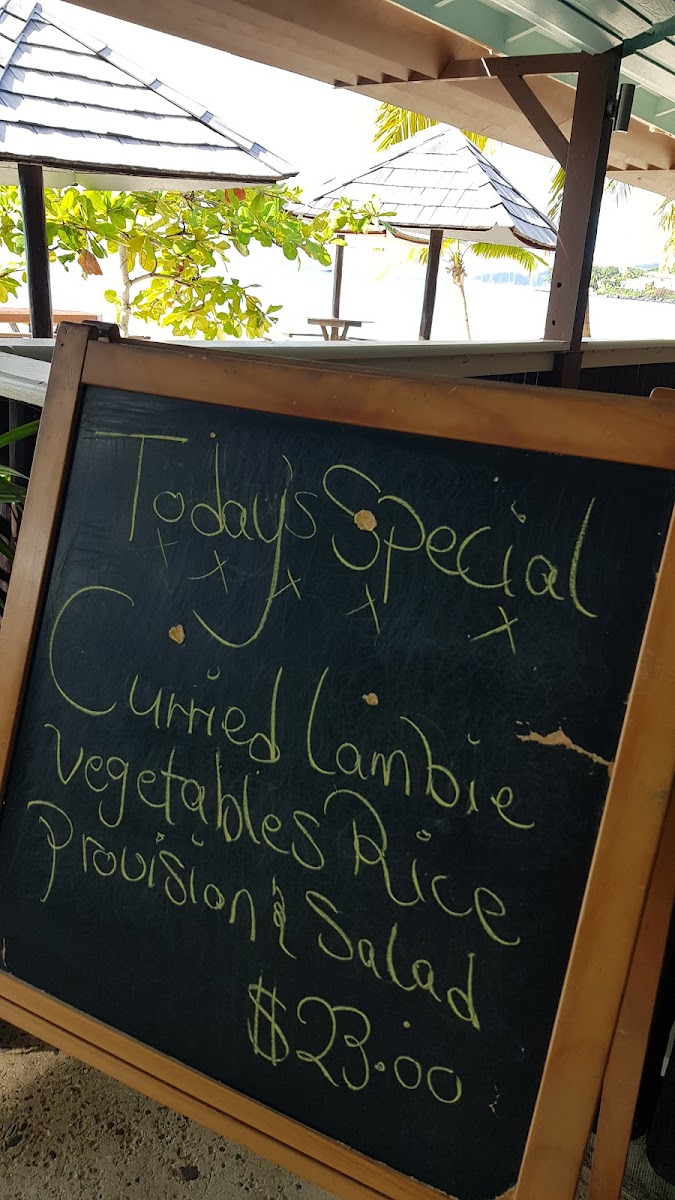 Today's Special
x x x x x
Curried Lambie
Vegetables Rice
Provision & Salad
$23.00